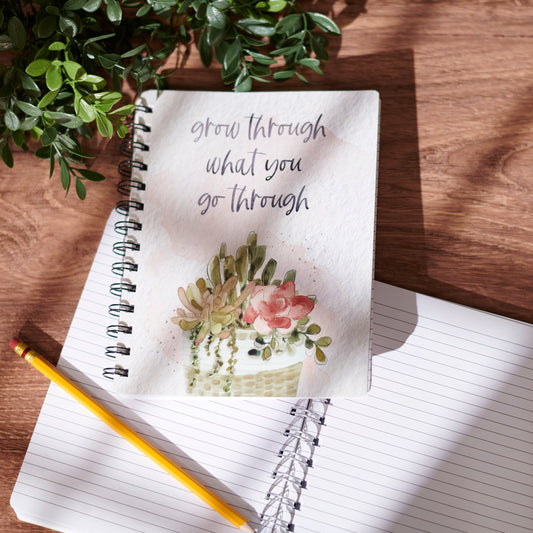 grow through
what you
go through